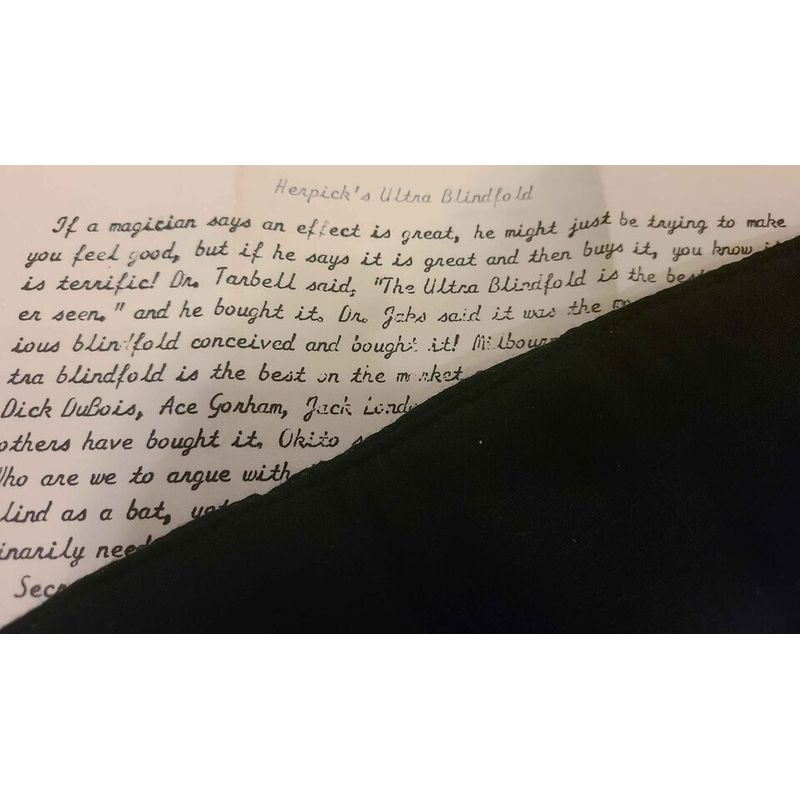 Herpick's Ultra Blindfold
If a magician says an effect is great, he might just be trying to make
you feel good, but if he says it is great and then buys it, you know
is terrific! Dr. Tarbell said, "The Ultra Blindfold is the best
er seen." and he bought it. Dr. Jaks said it was the
ious blindfold conceived and bought it!
tra blindfold is the best on the market
Dick DuBois, Ace Gorham, Jack
others have bought it. Okito
Who are we to argue with
lind as a bat,
inarily need